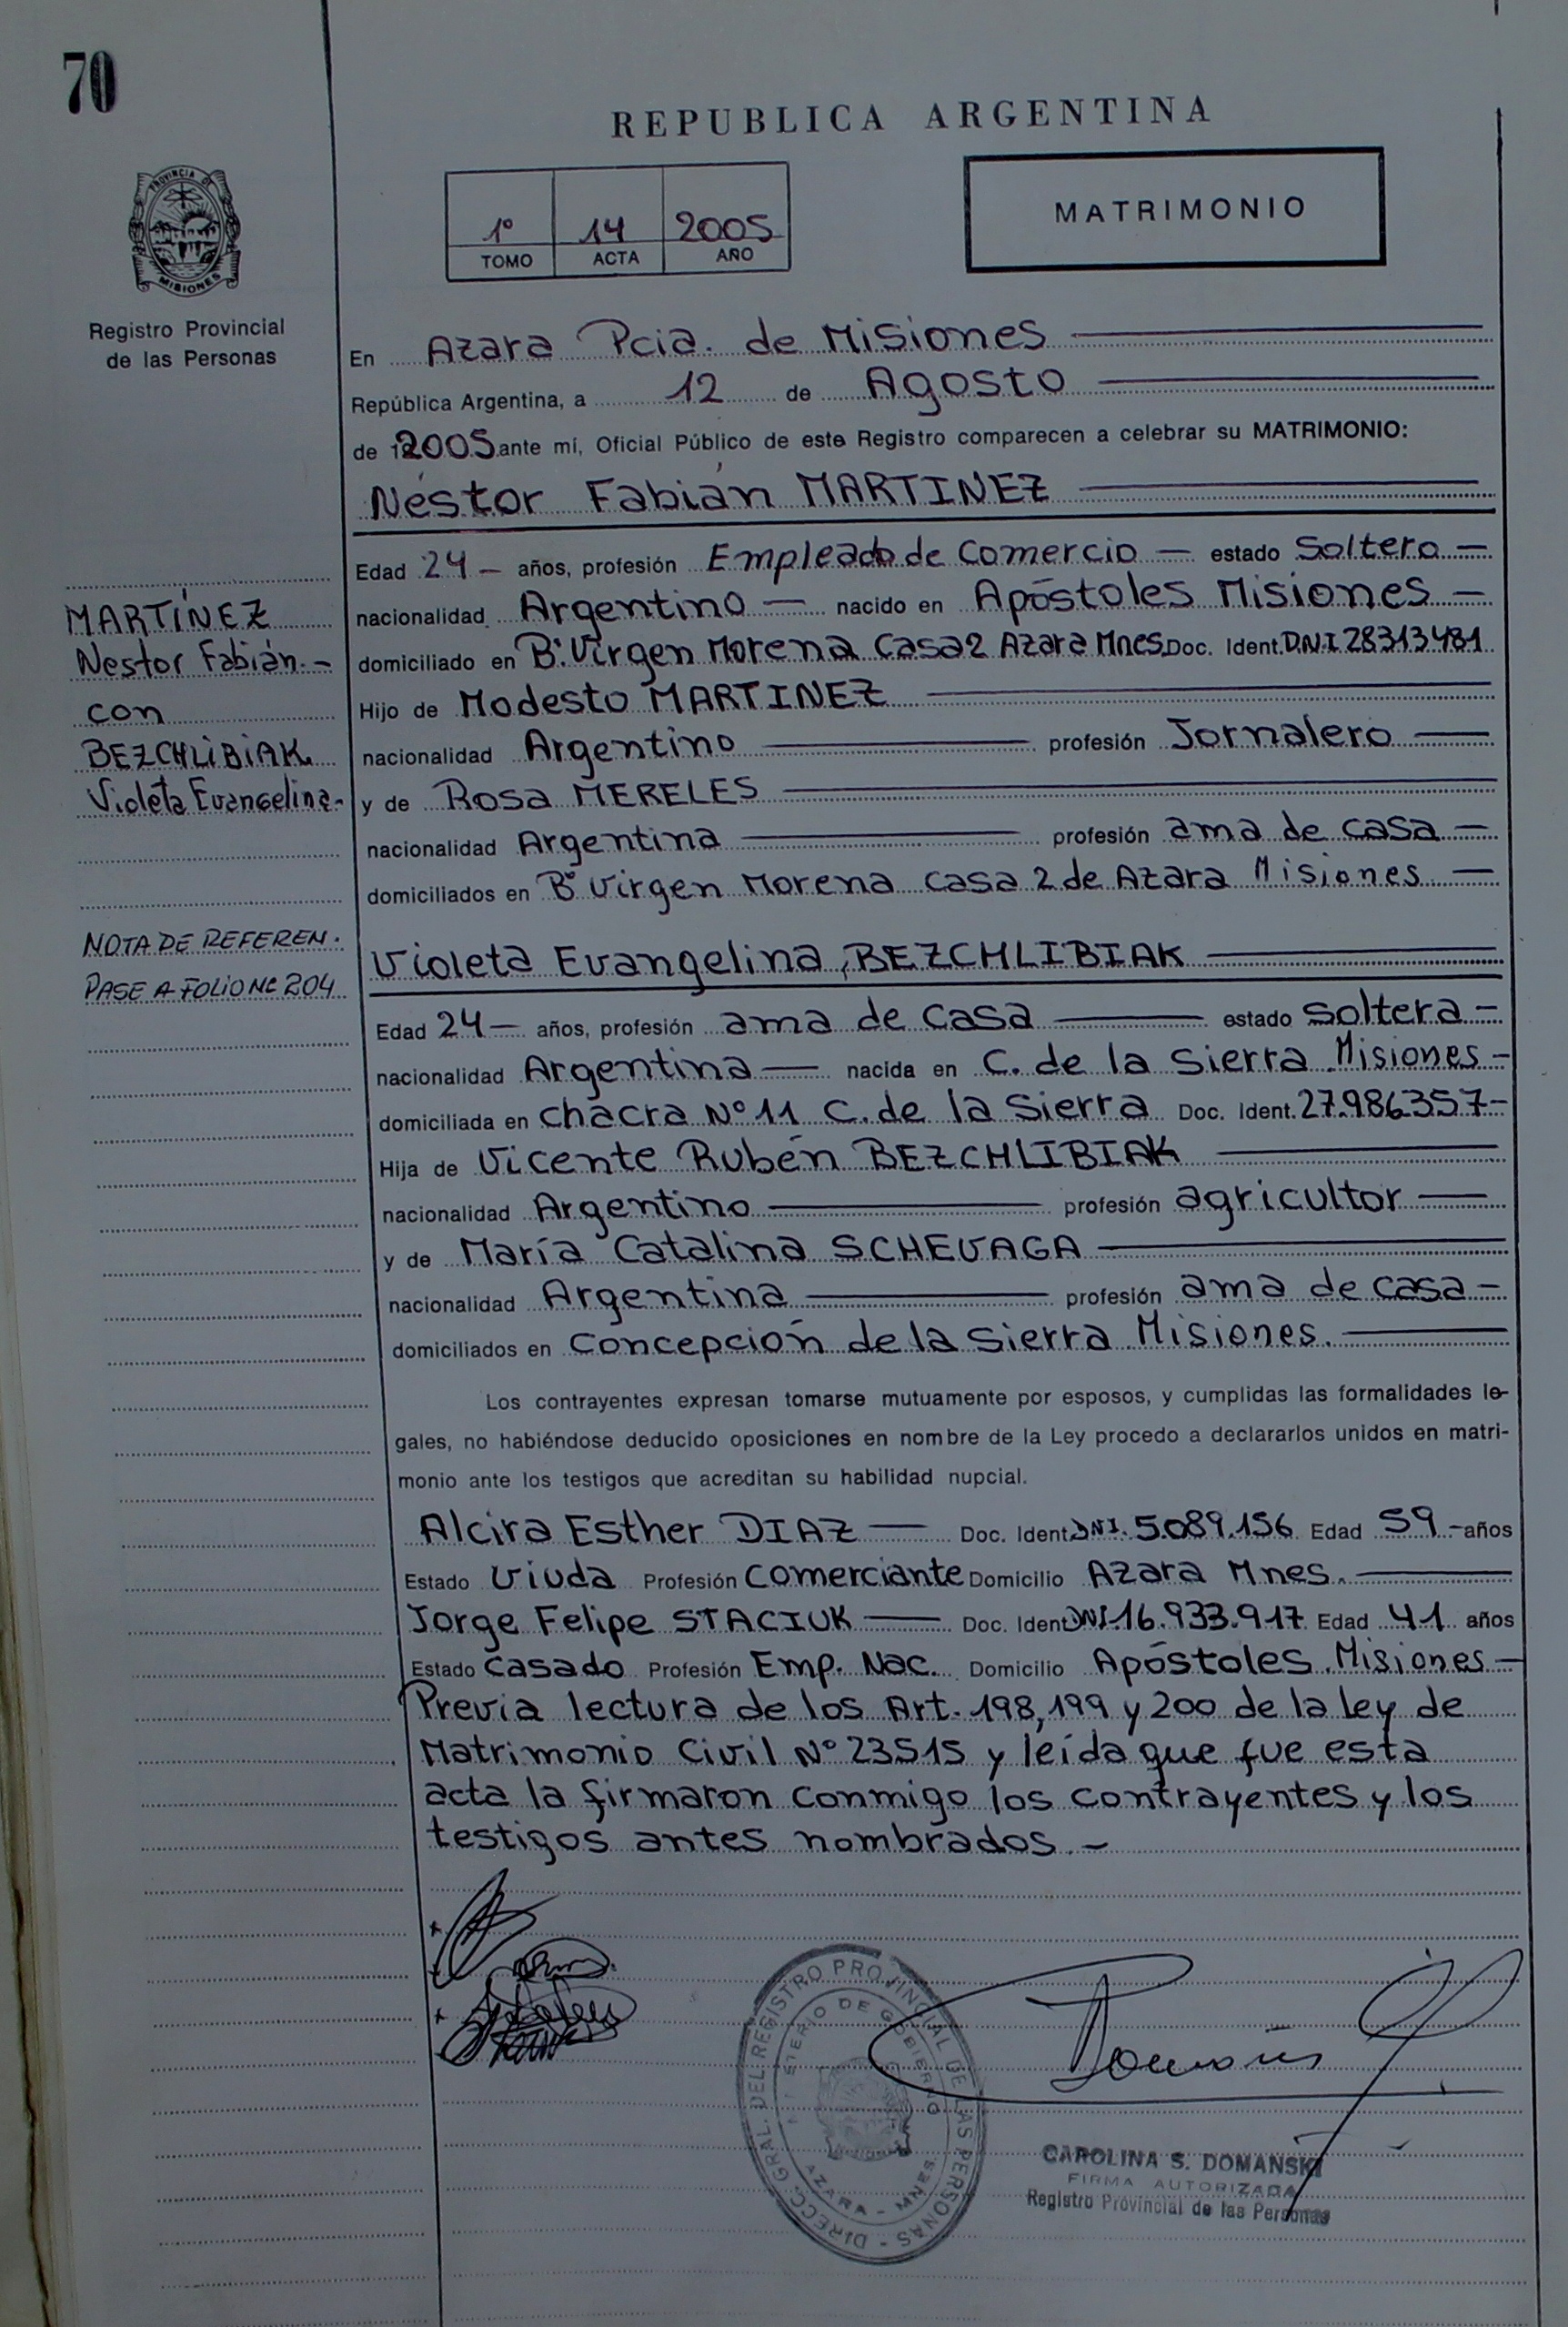 70
REPUBLICA ARGENTINA
PROVINCIA DE
MISIONES
1º 14 2005
TOMO ACTA AÑO
MATRIMONIO
Registro Provincial
de las Personas
En Azara Pcia. de Misiones
República Argentina, a 12 de Agosto
de 2005 ante mí, Oficial Público de este Registro comparecen a celebrar su MATRIMONIO:
Néstor Fabián MARTINEZ
Edad 24 - años, profesión Empleado de Comercio - estado Soltero -
nacionalidad Argentino - nacido en Apóstoles Misiones -
domiciliado en Bº Virgen Morena Casa 2 Azara Mnes. Doc. Ident. D.N.I. 28313481
Hijo de Modesto MARTINEZ
nacionalidad Argentino profesión Jornalero
y de Rosa MERELES
nacionalidad Argentina profesión ama de casa -
domiciliados en Bº Virgen Morena casa 2 de Azara Misiones -
MARTÍNEZ
Nestor Fabián.-
con
BEZCHLIBIAK
Violeta Evangelina.-
NOTA DE REFEREN.
PASE A FOLIO Nº 204
Violeta Evangelina, BEZCHLIBIAK
Edad 24 - años, profesión ama de casa estado soltera -
nacionalidad Argentina - nacida en C. de la Sierra Misiones -
domiciliada en chacra Nº 11 C. de la Sierra Doc. Ident. 27.986357-
Hija de Vicente Rubén BEZCHLIBIAK
nacionalidad Argentino profesión agricultor
y de María Catalina SCHEVAGA
nacionalidad Argentina profesión ama de casa -
domiciliados en Concepción de la Sierra Misiones.
Los contrayentes expresan tomarse mutuamente por esposos, y cumplidas las formalidades le-
gales, no habiéndose deducido oposiciones en nombre de la Ley procedo a declararlos unidos en matri-
monio ante los testigos que acreditan su habilidad nupcial.
Alcira Esther DIAZ - Doc. Ident. DNI. 5.089.156 Edad 59 - años
Estado Viuda Profesión Comerciante Domicilio Azara Mnes.
Jorge Felipe STACIUK - Doc. Ident. DNI. 16.933.917 Edad 41 años
Estado Casado Profesión Emp. Nac. Domicilio Apóstoles Misiones -
Previa lectura de los Art. 198, 199 y 200 de la ley de
Matrimonio Civil Nº 23515 y leída que fue esta
acta la firmaron conmigo los contrayentes y los
testigos antes nombrados.-
DIRECC. GRAL. DEL REGISTRO PROVINCIAL DE LAS PERSONAS
MINISTERIO DE GOBIERNO
AZARA - MNES.
CAROLINA S. DOMANSKI
FIRMA AUTORIZADA
Registro Provincial de las Personas